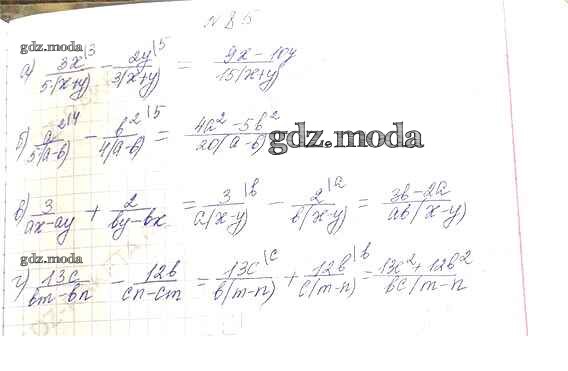 N 85
gdz.moda
а) 3x\3 / 5(x+y) - 2y\5 / 3(x+y) = 9x - 10y / 15(x+y)
б) a²\4 / 5(a-b) - b²\5 / 4(a-b) = 4a² - 5b² / 20(a-b) gdz.moda
в) 3 / ax-ay + 2 / by-bx = 3\b / a(x-y) - 2\a / b(x-y) = 3b-2a / ab(x-y)
gdz.moda
г) 13c / bm-bn - 12b / cn-cm = 13c\c / b(m-n) + 12b\b / c(m-n) = 13c²+12b² / bc(m-n